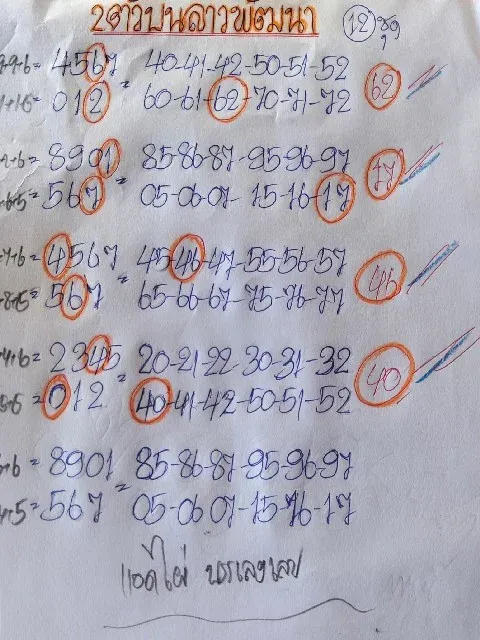 2ตัวบนลาวพัฒนา 12 ชุด
9+6= 4567 = 40-41-42-50-51-52
1+16= 012 60-61-62-70-71-72 62
4+6= 8901 = 85-86-87-95-96-97
6+5= 567 05-06-07-15-16-17 17
7+6= 4567 = 45-46-47-55-56-57
8+5= 567 65-66-67-75-76-77 46
4+6= 2345 = 20-21-22-30-31-32
+6= 012 40-41-42-50-51-52 40
+6= 8901 = 85-86-87-95-96-97
+5= 567 05-06-07-15-16-17
แอดไผ่ บรรเลงเลข